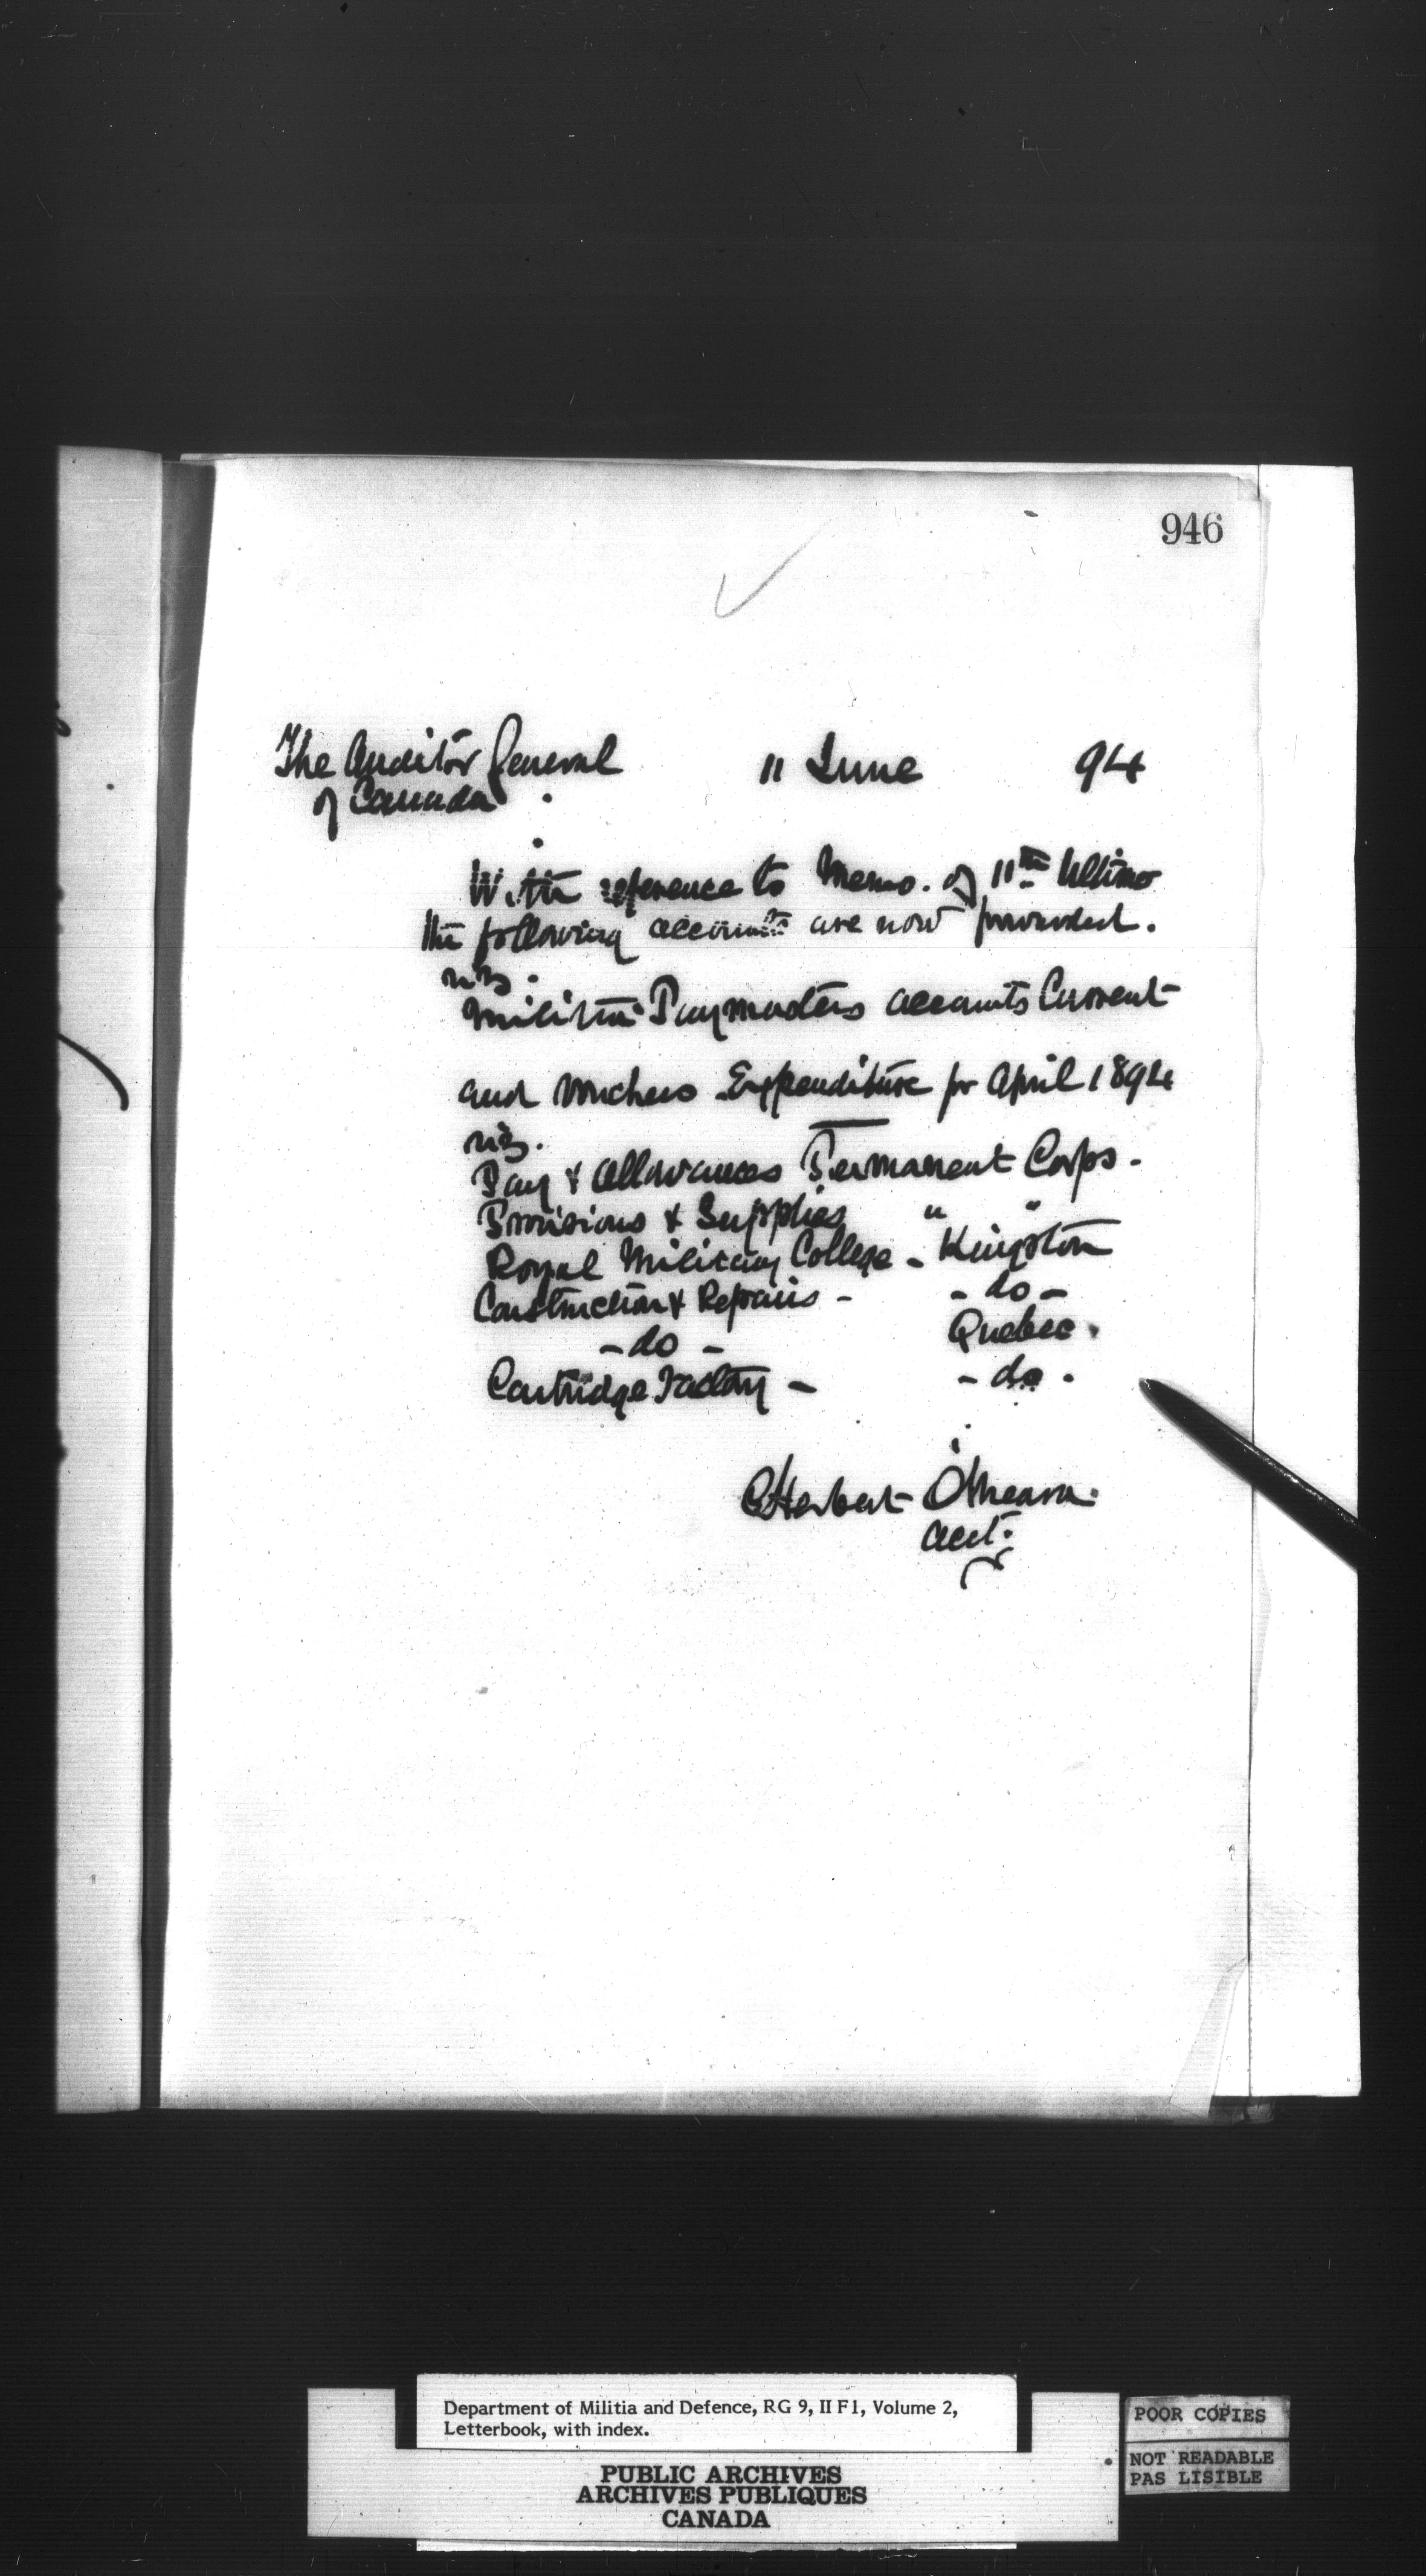 946
The Auditor General 11 June 94
of Canada
With reference to Memo. of 11th Ultimo
the following accounts are now forwarded.
viz.
Militia Paymasters accounts Current
and vouchers Expenditure for April 1894
viz.
Pay & Allowances Permanent Corps.
Provisions & Supplies " "
Royal Military College - Kingston
Construction & Repairs - - do -
- do - Quebec.
Cartridge Factory - - do.
Herbert O'Meara.
Acct.
Department of Militia and Defence, RG 9, II F1, Volume 2,
Letterbook, with index.
PUBLIC ARCHIVES
ARCHIVES PUBLIQUES
CANADA
POOR COPIES
NOT READABLE
PAS LISIBLE